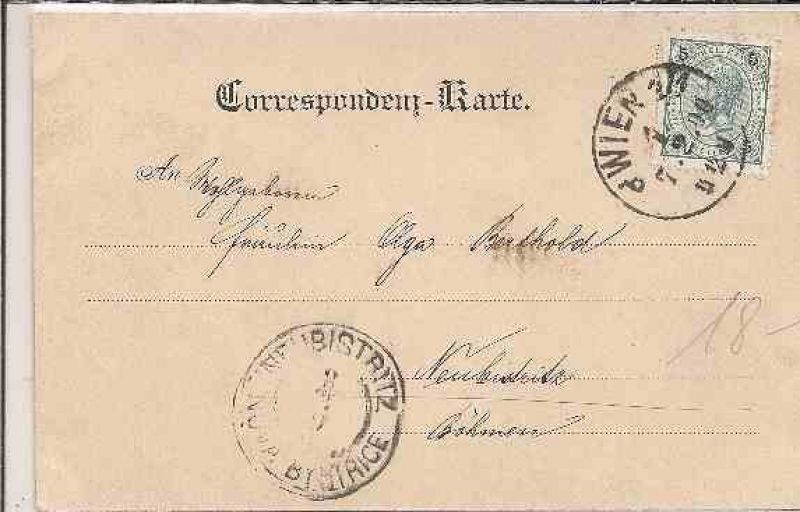 Correspondenz-Karte.
5 5
WIEN
An Wohlgeboren
Fräulein Olga Berthold
18-
Neubistritz
Böhmen
NEUBISTRITZ
BYSTŘICE